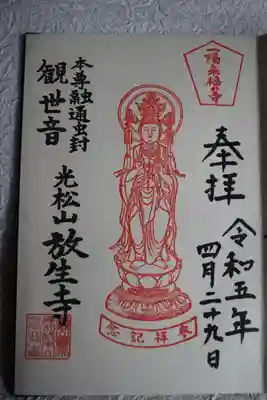 一陽来福の寺
奉拝
令和五年
四月二十九日
奉拝記念
本尊融通虫封
観世音
光松山
放生寺